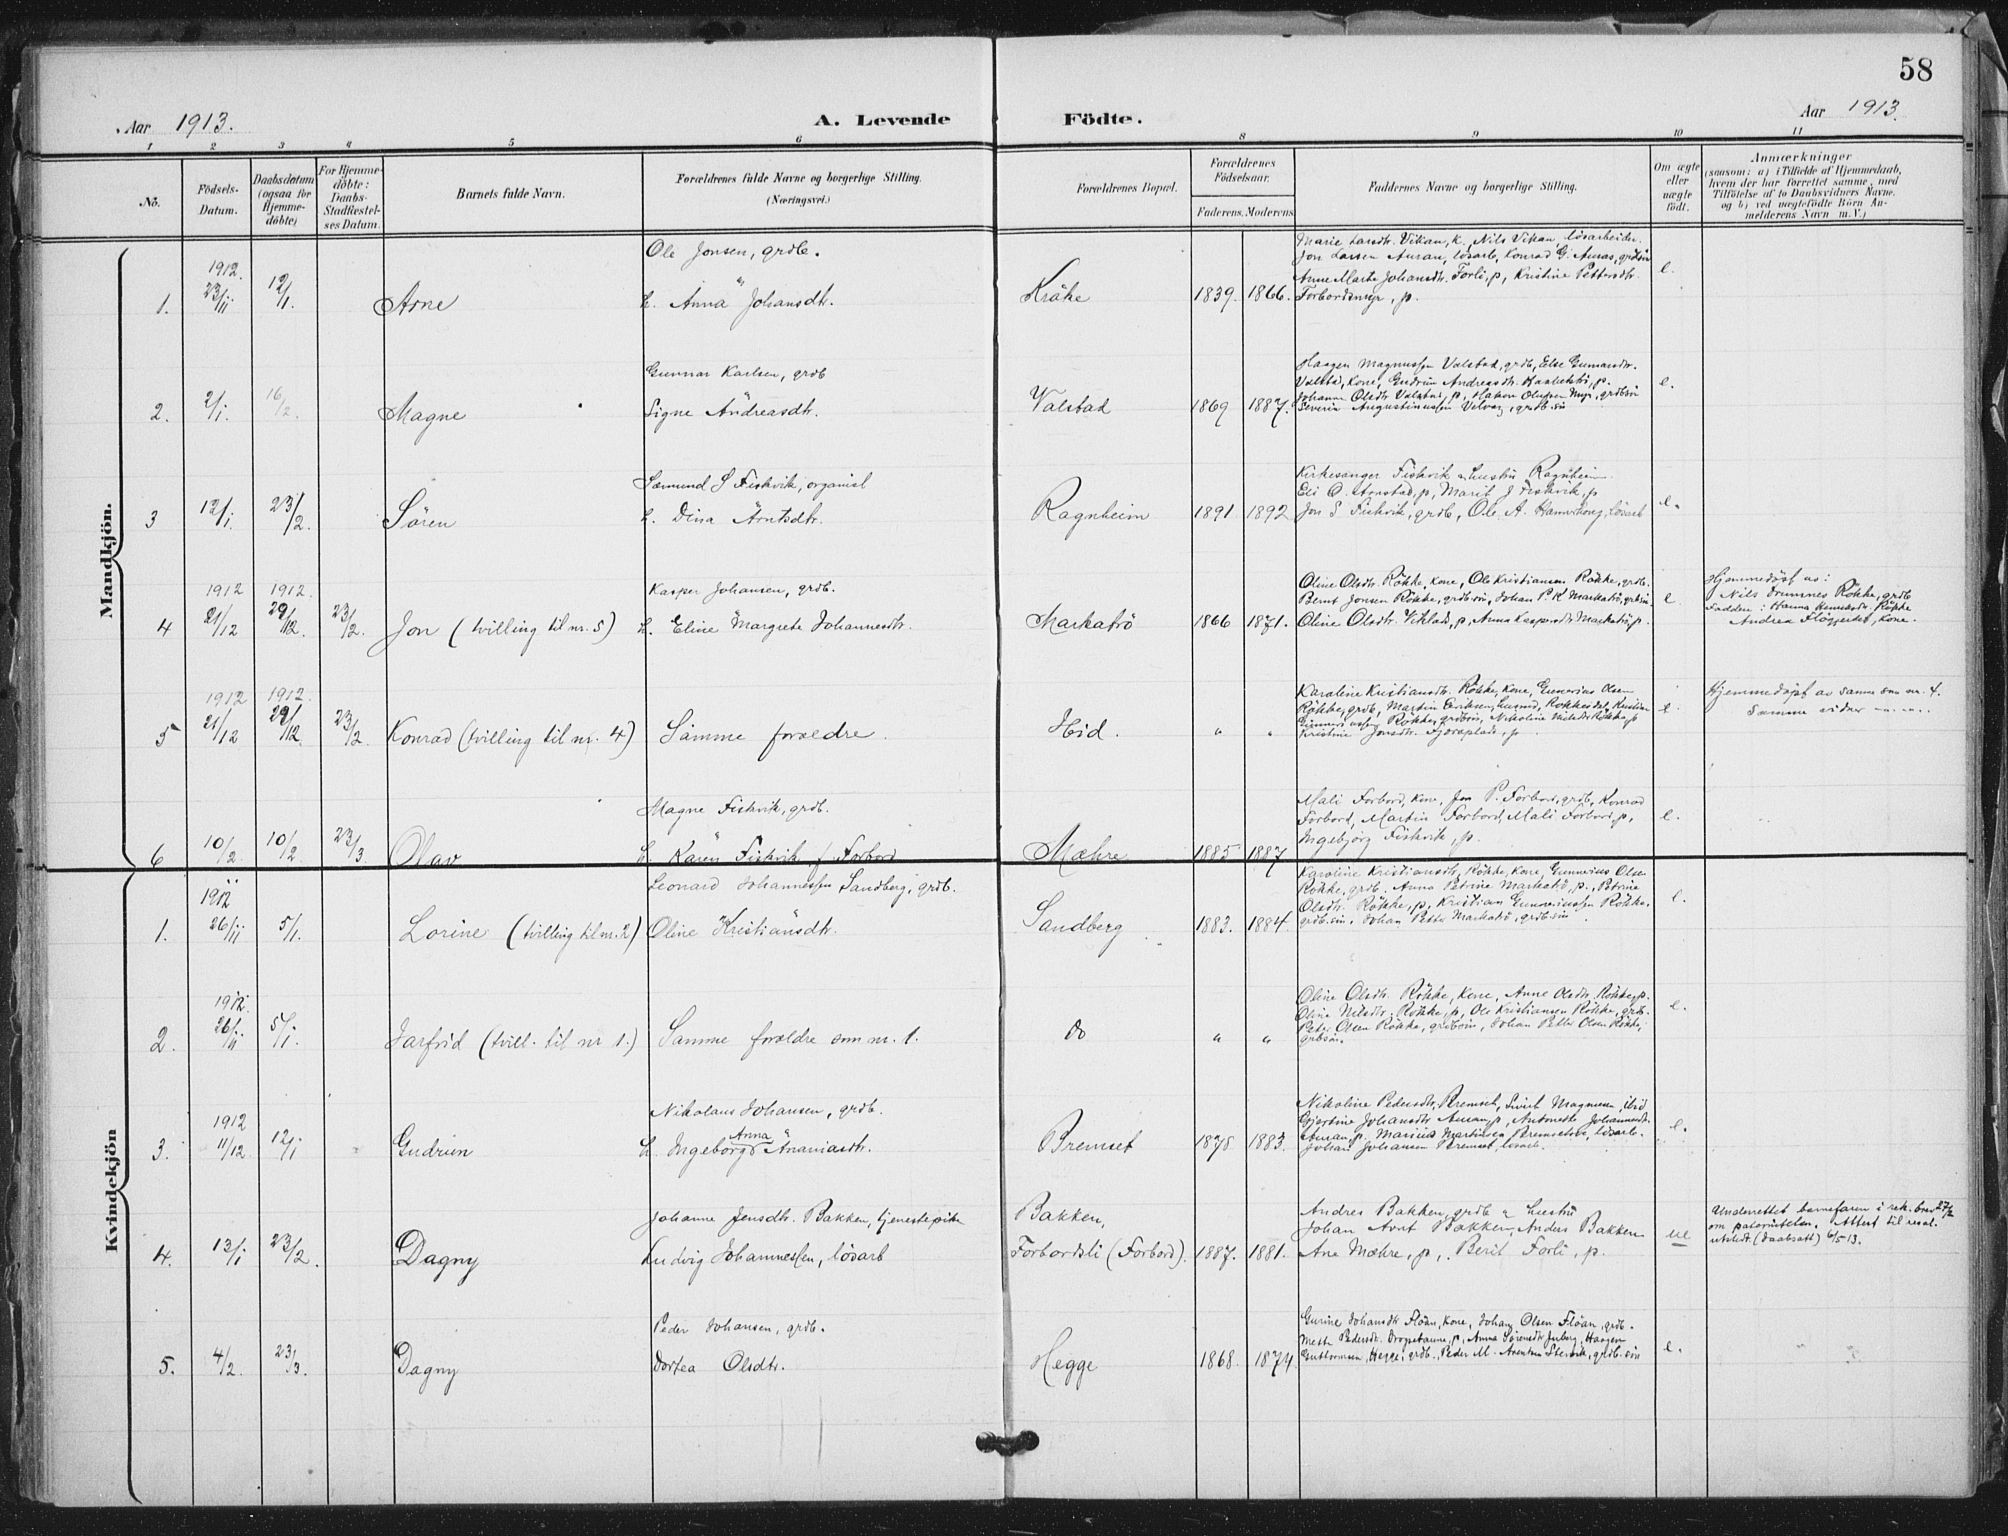 58
Aar 1913.
A. Levende Födte.
Aar 1913.
1 2 3 4 5 6 8 9 10 11
No.
Födsels-Datum.
Daabsdatum (ogsaa for Hjemmedöbte)
For Hjemmedöbte: Daabs-Stadfæstelses Datum.
Barnets fulde Navn.
Forældrenes fulde Navne og borgerlige Stilling.
(Næringsvei.)
Forældrenes Bopæl.
Forældrenes Födselsaar.
Faderens. Moderens.
Faddernes Navne og borgerlige Stilling.
Om ægte eller uægte födt.
Anmærkninger
(saasom: a) i Tilfælde af Hjemmedaab,
hvem der har forrettet samme, med
Tilföielse af to Daabsvidners Navne.
og b) ved uægtefödte Börn An-
melderens Navn m. V.)
Mandkjön.
1. 1912. 23/11 12/1. Arne
Ole Jonsen, grdb.
h. Anna Johansdtr.
Kråke 1839. 1866.
Marie Larsdtr. Vikan, k., Nils Vikan, lösarbeider.
Jon Larsen Auran, lösarb, Konrad G. Auran, grdbsön
Anne Marta Johansdtr. Forli, p, Kristine Pettersdtr.
Forbordsmyr, p.
e.
2. 2/1. 16/2. Magne
Gunnar Karlsen, grdb
Signe Andreasdtr.
Valstad 1869 1887.
Haagen Magnussen Valstad, grdb, Else Gunnarsdtr.
Valstad, kone, Gudrun Andreasdtr. p.
Johanna Olsdtr Valstad, p, Hakon Olufsen Myr, grdbsön
Severin Augustinussen Velvang, grdb.sön
e.
3 12/1 23/2. Sören
Sæmund S Fiskvik, organist
h. Dina Arntsdtr.
Ragnheim 1891 1892
Kirkesanger Fiskvik & hustru Ragnheim.
p, Marit J Fiskvik, p
Jon S Fiskvik, grdb, Ole A. lösarb
e.
4 1912 21/12 1912. 29/12. 23/2. Jon (tvilling til nr. 5)
Kasper Johansen, grdb.
h. Eline Margrete Johannesdtr.
Markabö 1866 1871.
Oline Olsdtr. Röкke, kone, Ole Kristiansen Rökke, grdb.
Bernt Jonsen Rökke, grdb.sön, Johan P. K Markabö, grdbsön
Oline Olsdtr. Viklad, p, Anna Kaspersdtr Markabö, p.
e
Hjemmedöpt av:
Nils Rökke, grdb
Faddere: Hanna Rökke
Andrea kone.
5 1912 21/12 1912. 29/12. 23/2. Konrad (tvilling til nr. 4)
Samme forældre.
Hid. " "
Karoline Kristiansdtr. Rökke, kone, Gunnerius Olsen
Rökke, grdb, Martin Eriksen, Rökke
Rökke, grdbsön, Nikoline Rökke, p
Kristine Jonsdtr. p.
e.
Hjemmedöpt av samme som nr. 4.
Samme vidner
6 10/2. 10/2 23/3. Olav
Magne Fiskvik, grdb.
h. Karen Fiskvik, f. Forbord
Mæhre 1885 1887
Mali Forbord, kone, Jon P. Forbord, grdb, Konrad
Forbord, Martin Forbord, Mali Forbord, p,
Ingebjörg Fiskvik, p.
e.
Kvindekjön
1. 1912 26/11 5/1. Lorine (tvilling til nr. 2)
Leonard Johannessen Sandberg, grdb.
Oline Kristiansdtr.
Sandberg 1883. 1884.
Karoline Kristiansdtr, Rökke, kone, Gunnerius Olsen
Rökke, grdb. Anna Petrine Markabö, p., Petrine
Olsdtr. Rökke, p, Kristian Gunneriussen Rökke,
grdb.sön, Johan Petter Markabö, grdb.sön.
e.
2. 1912. 26/11 5/1. Jarfrid (tvill. til nr 1.)
Samme forældre som nr. 1.
do " "
Oline Olsdtr. Rökke, kone, Anne Olsdtr. Rökke, p.
Oline Nilsdtr. Rökke, p, Ole Kristiansen Rökke, grdb.
Peter Olsen Rökke, grdbsön, Johan Petter Olsen Rökke,
grdbsön.
e.
3. 1912 11/12. 12/1 Gudrun
Nikolaus Johansen, grdb.
h. Ingeborg Anna Ananiasdtr.
Bremset 1878. 1883.
Nikoline Pedersdtr. Bremset, Sivert Magnussen, ibid
Gjertine Johansdtr Auran, p, Antonette Johannesdtr.
Auran, p. Marius Martinsen lösarb.
Johan Johansen Bremset, lösarb.
e.
4. 13/1 23/2. Dagny
Johanne Jensdtr. Bakken, tjenestepike
Ludvig Johannessen, lösarb
Bakken,
Forbordsli (Forbord). 1887. 1881.
Andres Bakken, grdb & hustru
Johan Arnt Bakken, Anders Bakken
Ane Mæhre, p, Berit Forli, p.
ue
Underrettet barnefaren i rek. brev 27/2
om paternitetn. Attest til resol.
utstedt (daabsatt) 6/5 13.
5. 4/2. 23/3. Dagny
Peder Johansen, grdb.
Dortea Olsdtr.
Hegge 1868. 1874
Gurine Johansdtr Flöan, kone, Johan Olsen Flöan, grdb.
Pedersdtr. p, Anna Sörensdtr Haagen
Guttormsen, Hegge, grdb., Peder M. grdb.sön
e.